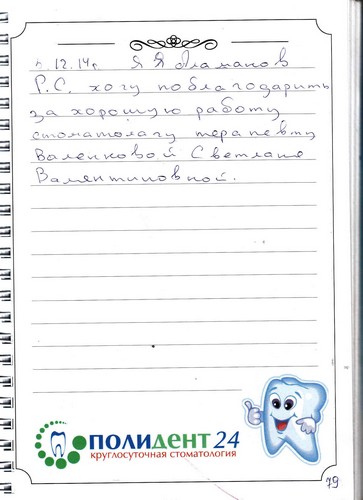 12.14г. Я Я Аламанов
Р.С. хочу поблагодарить
за хорошую работу
стоматологу терапевту
Валенковой Светлане
Валентиновной.
ПОЛИДЕНТ 24
круглосуточная стоматология
79